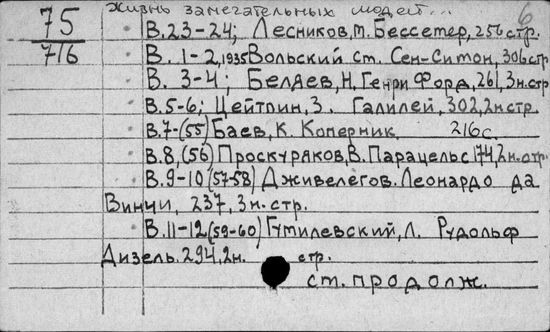 Жизнь замечательных людей... 6
75
716
В.23-24; Лесников, М. Бессемер, 256 стр.
В. 1-2, 1935 Вольский Ст. Сен-Симон, 306 стр
В. 3-4; Беляев, Н. Генри Форд, 261, 3н.стр
В.5-6; Цейтлин, З. Галилей, 302, 2н стр.
В.7-(55) Баев, К. Коперник 216 с.
В.8, (56) Проскуряков, В. Парацельс 174, 2н.стр.
В.9-10 (57-58) Дживелегов. Леонардо да
Винчи, 237, 3н.стр.
В.11-12 (59-60) Гумилевский, Л. Рудольф
Дизель. 294, 2н. стр.
ст. продолж.